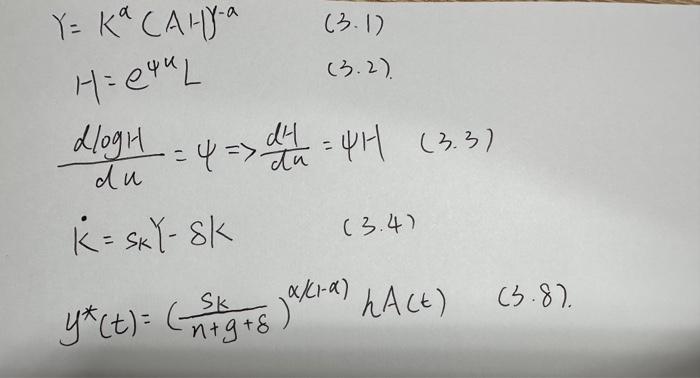 Y = K^α (AH)^1-α (3.1)
H = e^ψu L (3.2).
dlogH/du = ψ => dH/du = ψH (3.3)
K̇ = s_K Y - δK (3.4)
y*(t) = (s_K/n+g+δ)^α/(1-α) hA(t) (3.8).